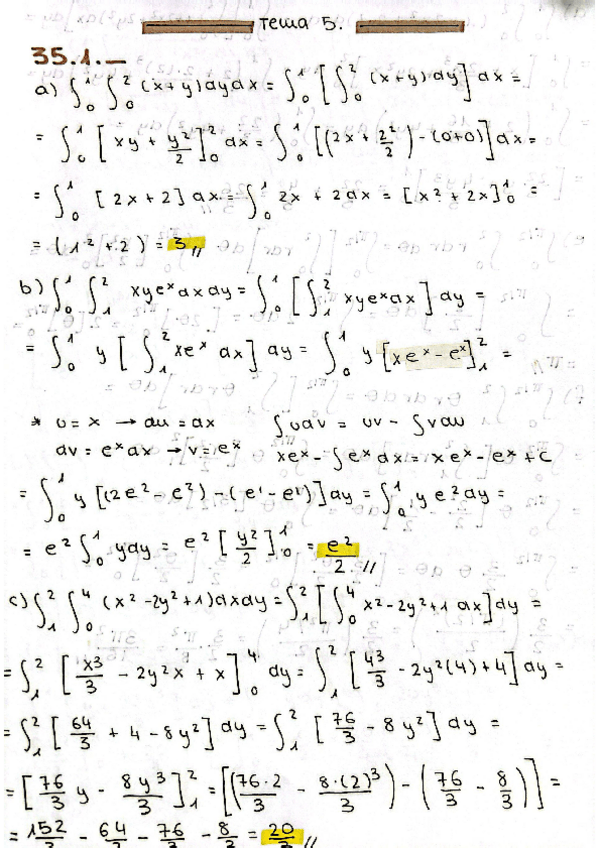 Tema 5.
35.1.-
a) ∫₀¹ ∫₀² (x+y) dy dx = ∫₀¹ [∫₀² (x+y) dy] dx =
= ∫₀¹ [xy + y²/2]₀² dx = ∫₀¹ [(2x + 2²/2) - (0+0)] dx =
= ∫₀¹ [2x+2] dx = ∫₀¹ 2x + 2 dx = [x² + 2x]₀¹ =
= (1² + 2) = 3 //
b) ∫₀¹ ∫₁² xyeˣ dx dy = ∫₀¹ [∫₁² xyeˣ dx] dy =
= ∫₀¹ y [∫₁² xeˣ dx] dy = ∫₀¹ y [xeˣ - eˣ]₁² =
* u = x → du = dx ∫udv = uv - ∫vdu
dv = eˣ dx → v = eˣ xeˣ - ∫eˣ dx = xeˣ - eˣ + c
= ∫₀¹ y [(2e² - e²) - (e¹ - e¹)] dy = ∫₀¹ y e² dy =
= e² ∫₀¹ y dy = e² [y²/2]₀¹ = e²/2 //
c) ∫₁² ∫₀⁴ (x² - 2y² + 1) dx dy = ∫₁² [∫₀⁴ x² - 2y² + 1 dx] dy =
= ∫₁² [x³/3 - 2y²x + x]₀⁴ dy = ∫₁² [4³/3 - 2y²(4) + 4] dy =
= ∫₁² [64/3 + 4 - 8y²] dy = ∫₁² [76/3 - 8y²] dy =
= [76/3 y - 8y³/3]₁² = [(76·2/3 - 8·(2)³/3) - (76/3 - 8/3)] =
= 152/3 - 64/3 - 76/3 - 8/3 = 20/3 //